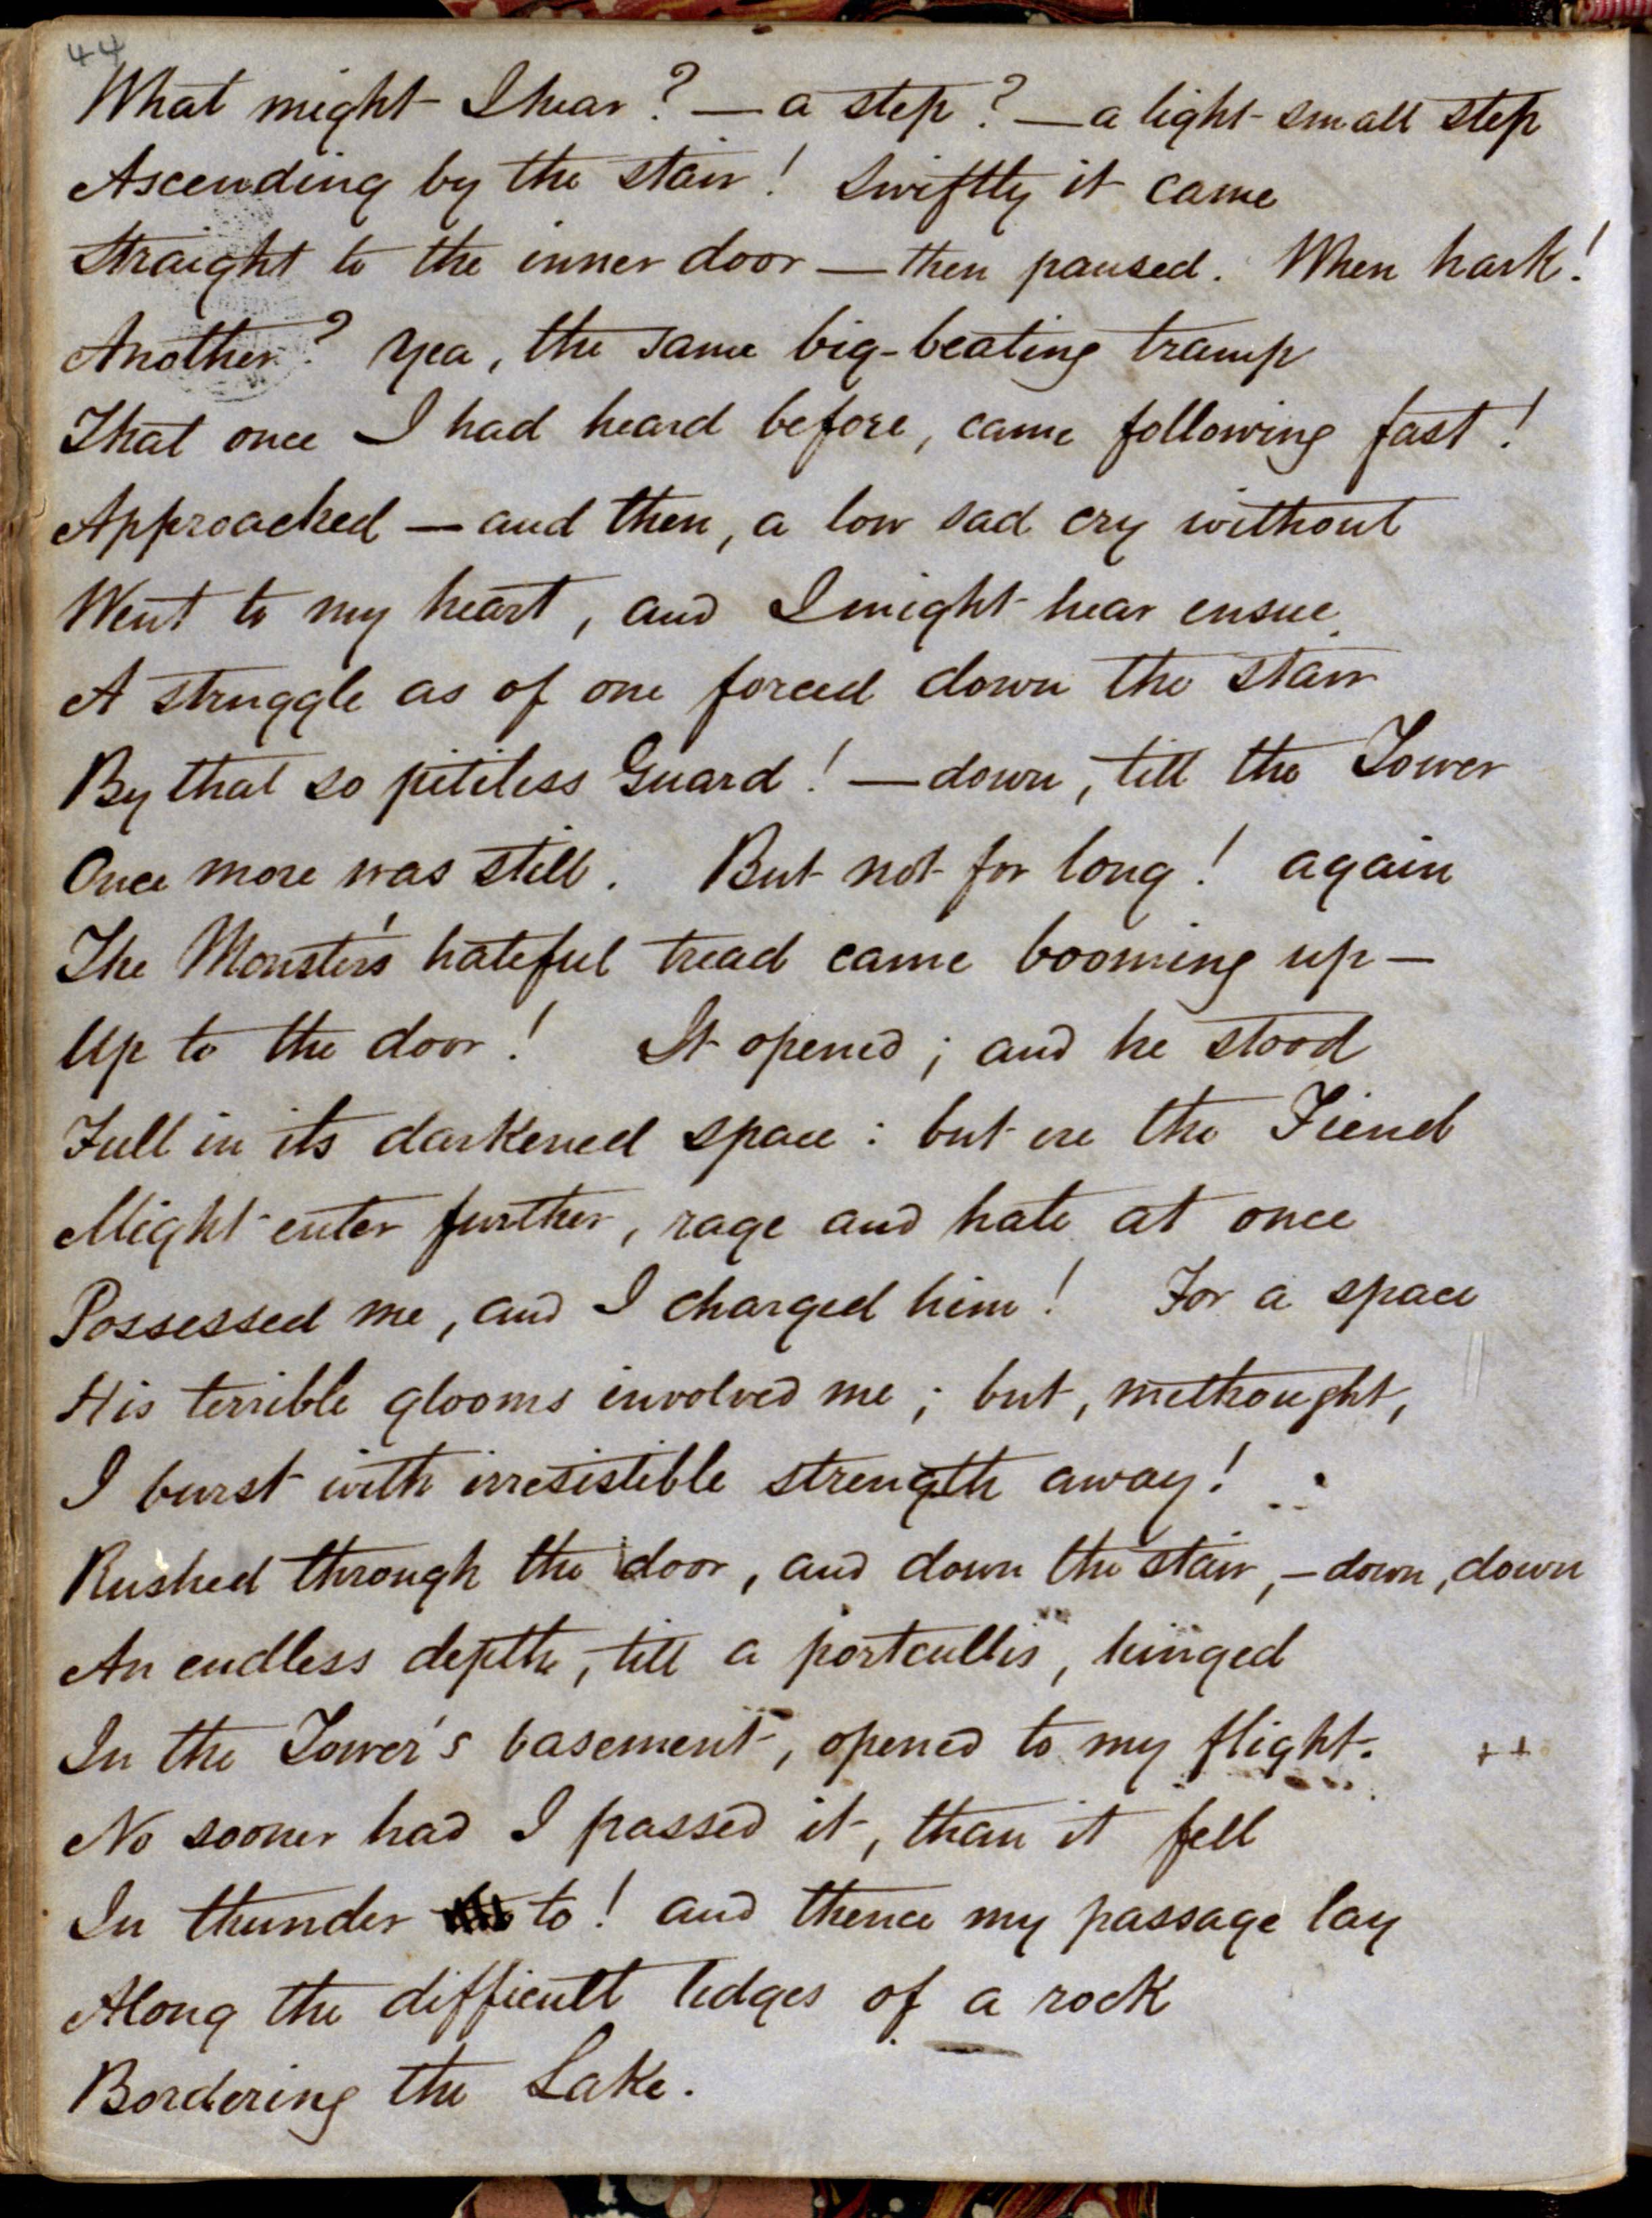 44
What might I hear? — a step? — a light small step
Ascending by the stair! Swiftly it came
Straight to the inner door — then paused. When hark!
Another? Yea, the same big-beating tramp
That once I had heard before, came following fast!
Approached — and then, a low sad cry without
Went to my heart, and I might hear ensue
A struggle as of one forced down the stair
By that so pitiless Guard! — down, till the Tower
Once more was still. But not for long! again
The Monster's hateful tread came booming up —
Up to the door! It opened; and he stood
Full in its darkened space: but ere the Fiend
Might enter further, rage and hate at once
Possessed me, and I charged him! For a space
His terrible glooms involved me; but, methought,
I burst with irresistible strength away!
Rushed through the door, and down the stair, — down, down
An endless depth, till a portcullis, hinged
In the Tower's basement, opened to my flight. ++
No sooner had I passed it, than it fell
In thunder to! and thence my passage lay
Along the difficult ledges of a rock
Bordering the Lake.